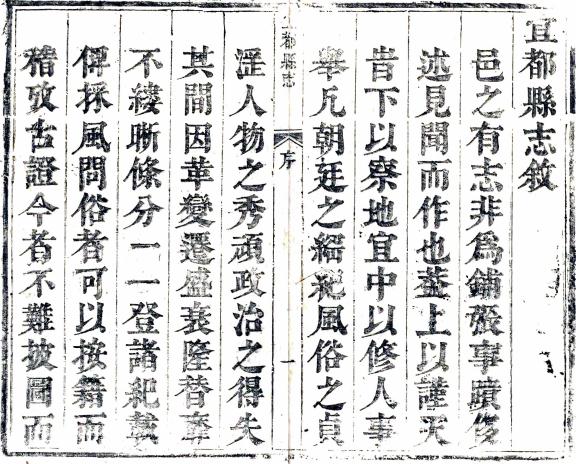 宜都縣志敘
邑之有志非爲鋪張事蹟侈
述見聞而作也葢上以謹天
旹下以察地宜中以修人事
舉凡朝廷之綱紀風俗之貞
宜都縣志
序
一
淫人物之秀頑政治之得失
其間因革變遷盛衰隆替
不縷晰條分一一登諸紀載
俾採風問俗者可以按籍而
稽攷古證今者不難披圖而